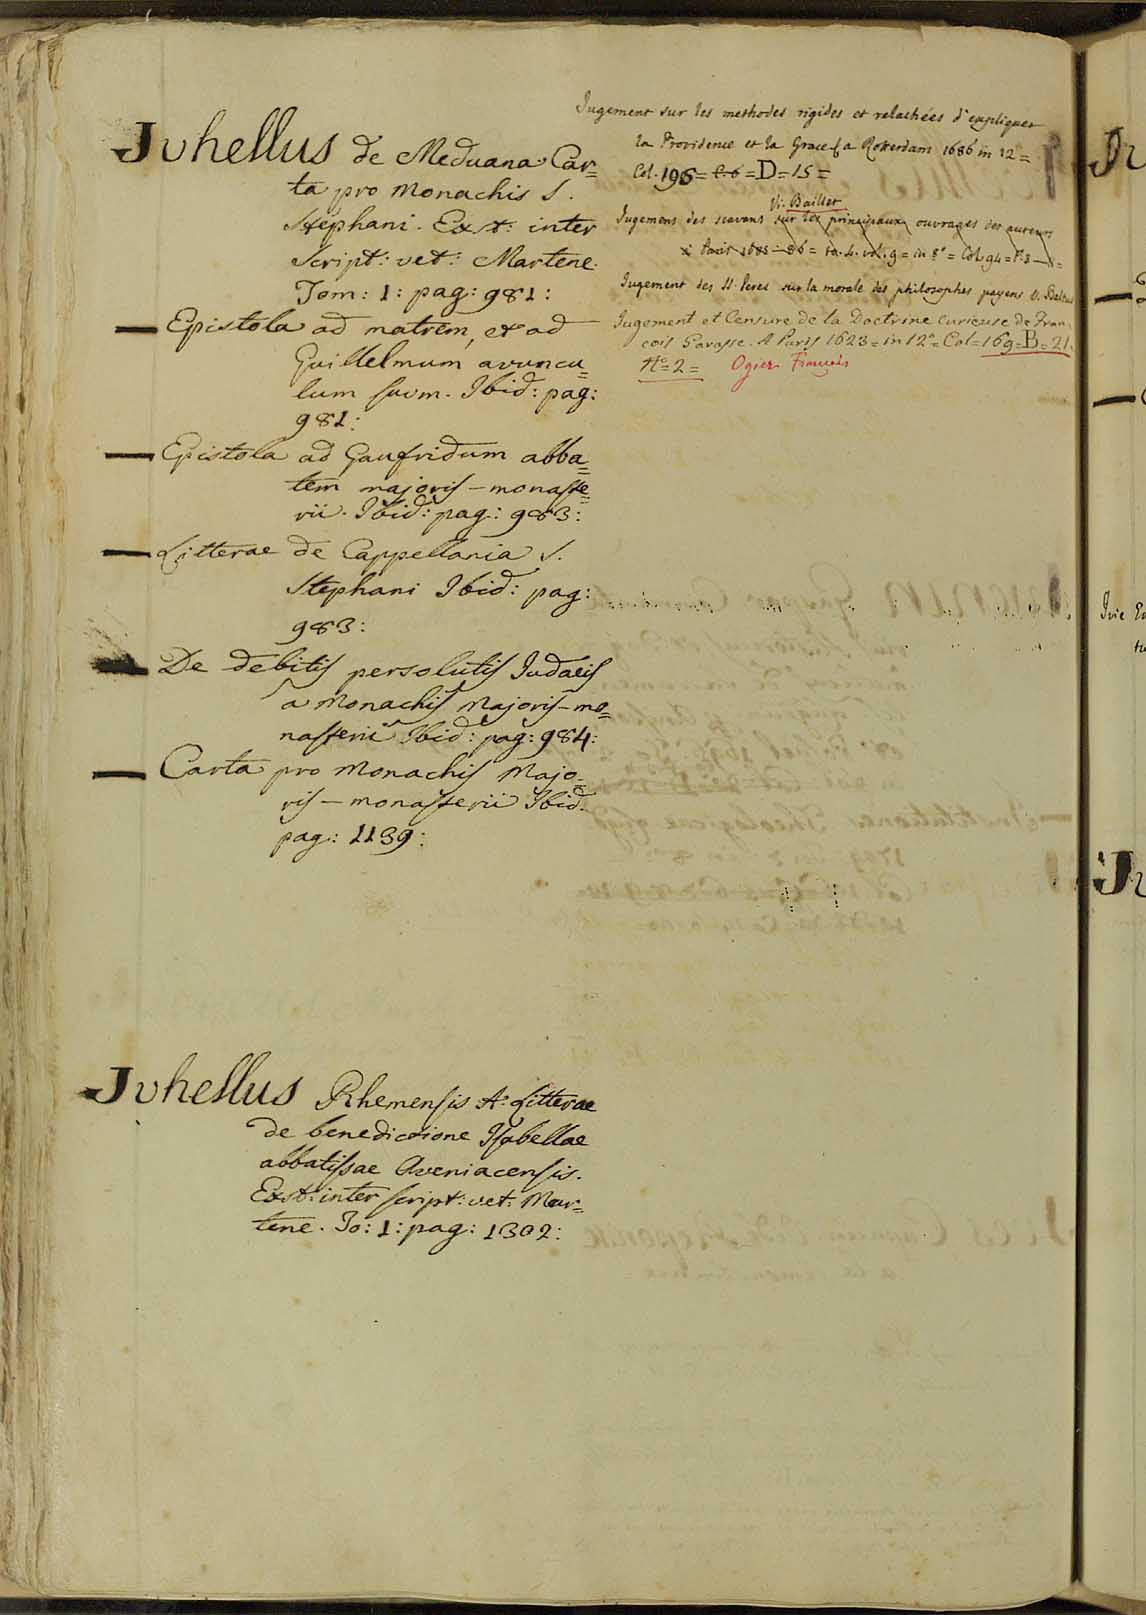 Juhellus de Meduana Car=
ta pro Monachis S.
Stephani. Exst: inter
Script: vet: Martene.
Tom: 1: pag: 981:
— Epistola ad matrem, et ad
Guillelmum avuncu=
lum suum. Ibid: pag:
981:
— Epistola ad Gaufridum abba=
tem majoris-monaste=
rii. Ibid: pag: 983:
— Litterae de Cappellania S.
Stephani Ibid: pag:
983:
— De debitis persolutis Judaeis
a Monachis Majoris-mo=
nasterii Ibid: pag: 984:
— Carta pro Monachis Majo=
ris-monasterii Ibid.
pag: 1139:
Juhellus Rhemensis A: Litterae
de benedictione Isabellae
abbatissae Aveniacensis.
Exst: inter script: vet: Mar=
tene. To: 1: pag: 1302:
Jugement sur les methodes rigides et relachées d'expliquer
la Providence et la Grace a Rotterdam 1686 in 12=
Col. 196= =D=15=
Vi. Baillet
Jugemens des scavans sur les principaux ouvrages des auteurs
a Paris 1685-86= to. 4. vol. 9= in 8°= Col. 94=
Jugement des SS. Peres sur la morale des philosophes payens v. Baltus
Jugement et Censure de la Doctrine curieuse de Fran-
cois Garasse. A Paris 1623= in 12°= Col=169=B=21.
N°=2= Ogier François